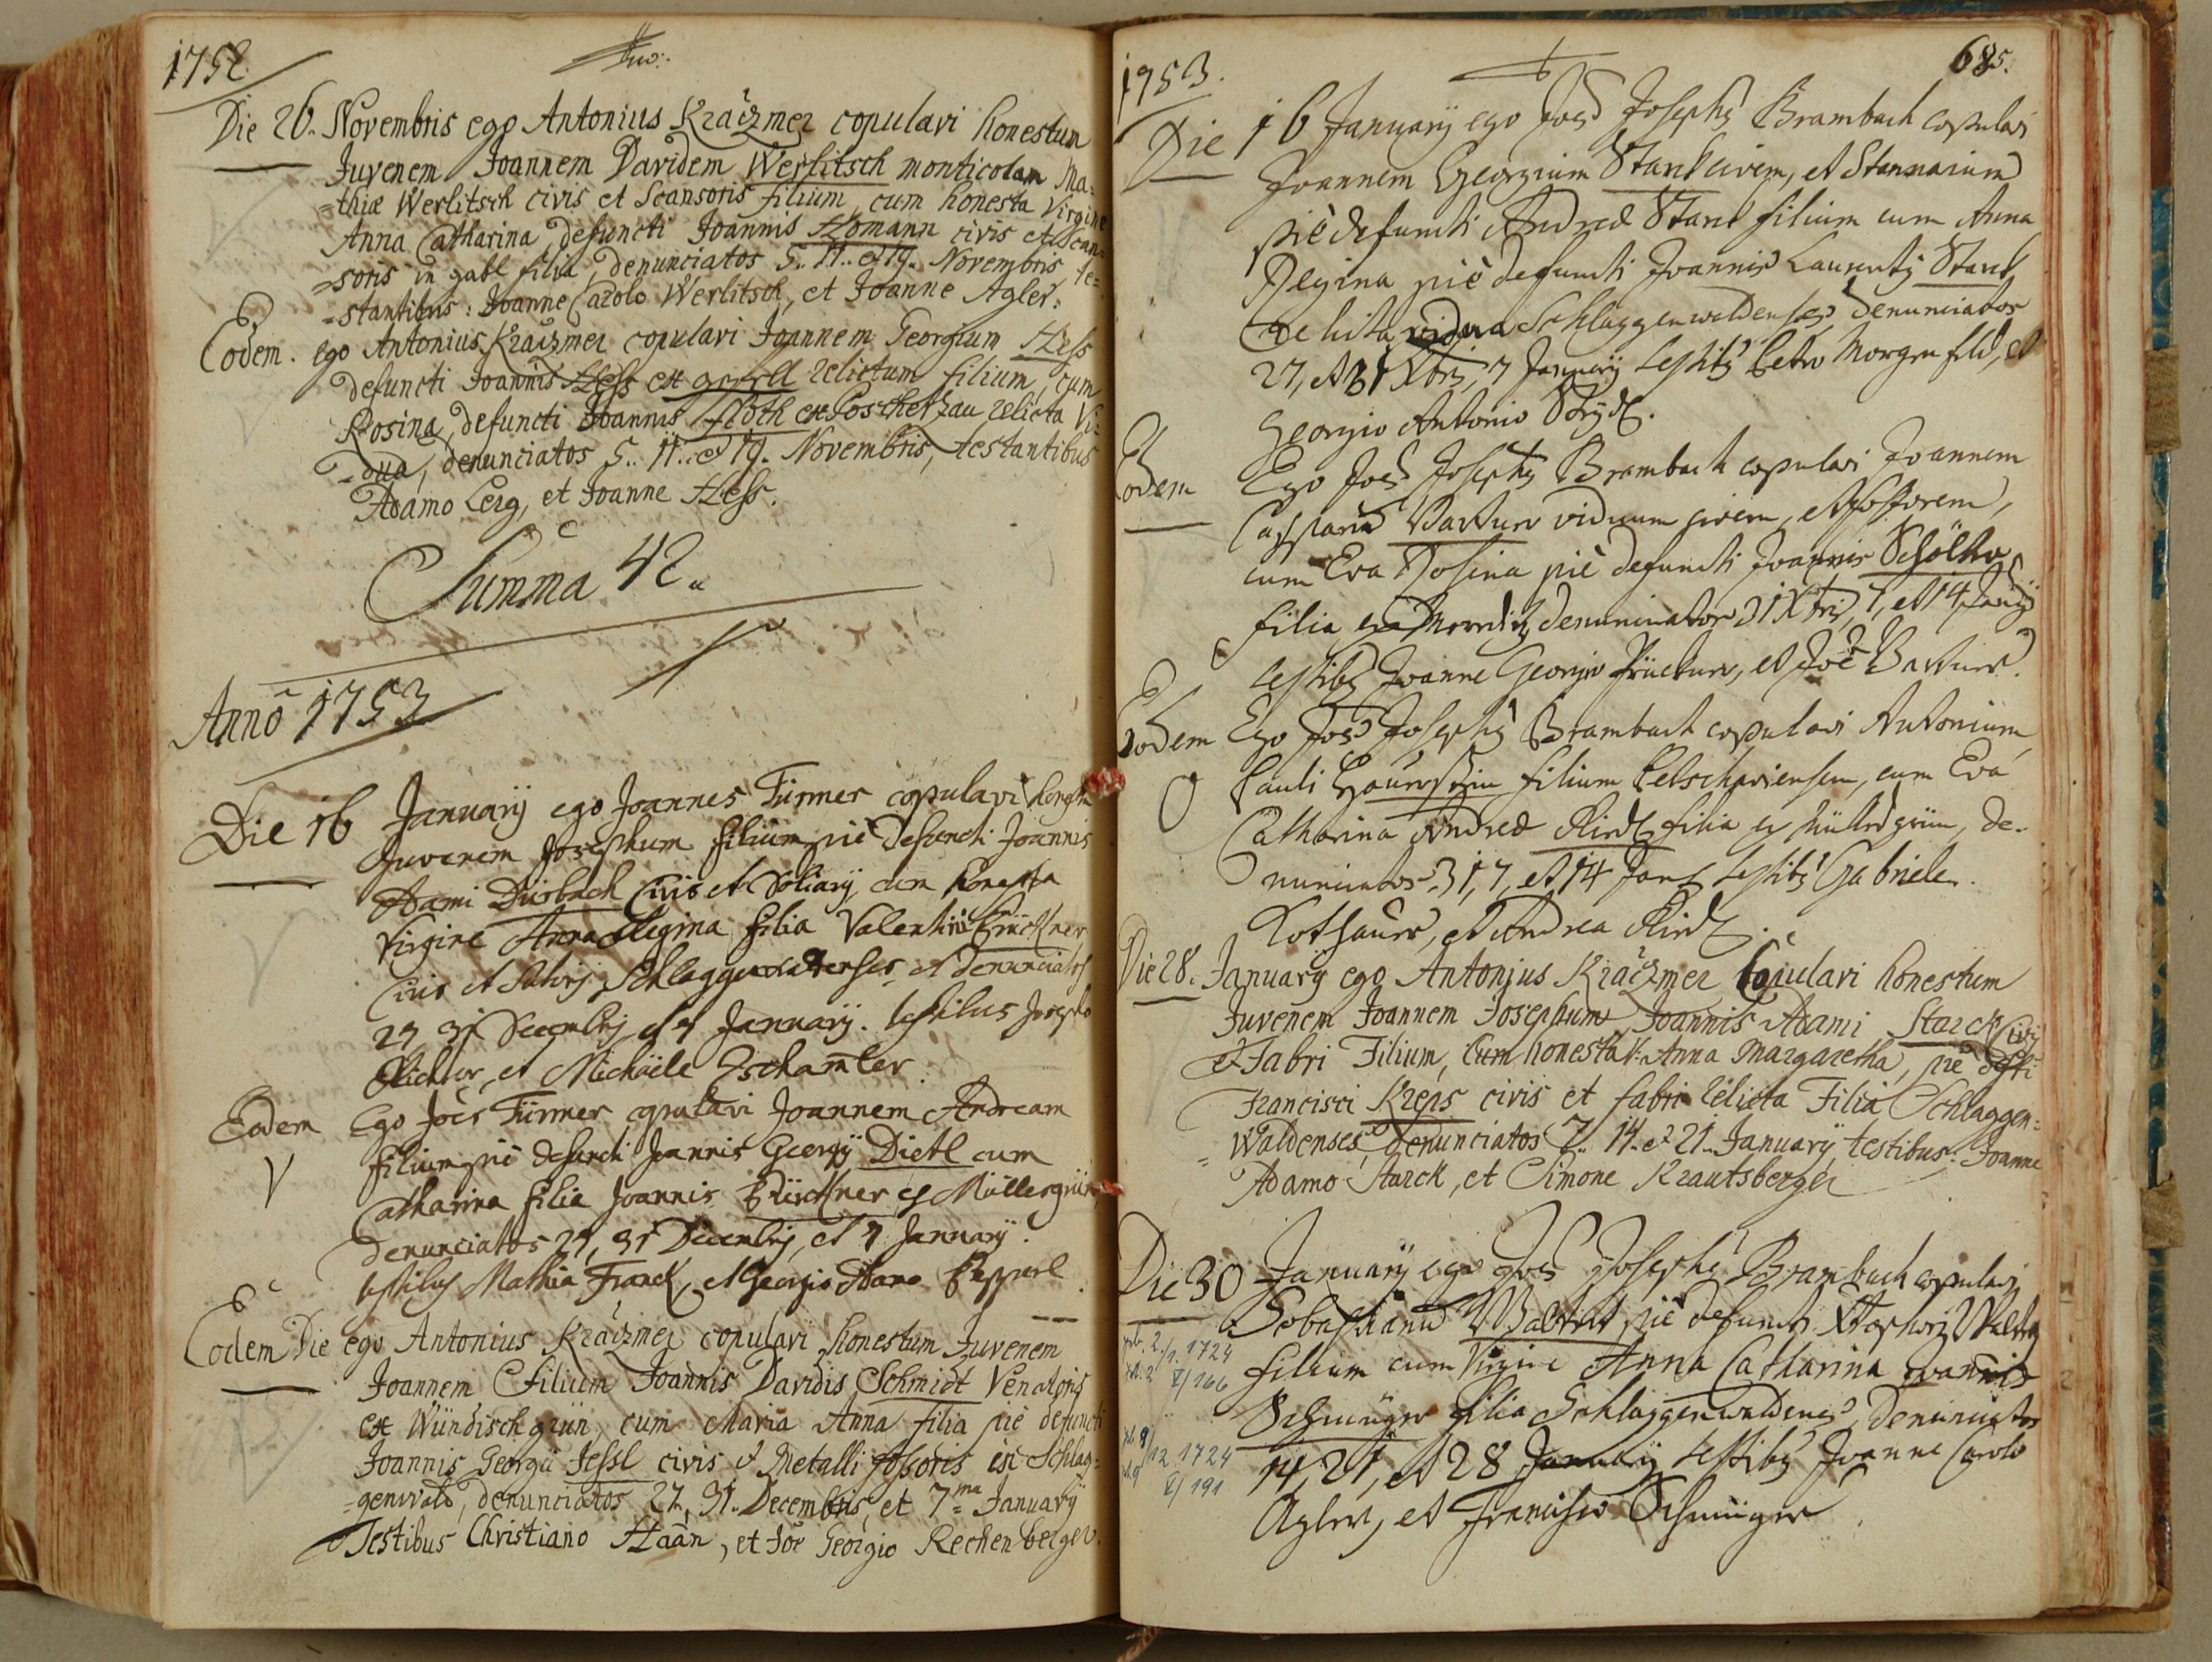 1752
Die 26. Novembris ego Antonius Kraczmer copulavi honestum
Juvenem Joannem Davidem Werlitsch monticolam Ma=
=thiæ Werlitsch civis et Scansoris filium, cum honesta Virgine
Anna Catharina, defuncti Joannis Homann civis et Scan=
=soris in gabl filia, denunciatos 5. 11. et 19. Novembris te=
=stantibus: Joanne Carolo Werlitsch, et Joanne Agler.
Eodem. ego Antonius Kraczmer copulavi Joannem Georgium Hess
defuncti Joannis Hess ex relictum filium, cum
Rosina, defuncti Joannis ex Poschetzau relicta Vi=
=dua, denunciatos 5. 11. et 19. Novembris, testantibus
Adamo Lerg, et Joanne Hess.
Summa 42
Anno 1753
Die 16 Januarij ego Joannes Türmer copulavi
Juvenem Josephum filium piè defuncti Joannis
Adami civis et cum honesta
Virgine Anna Regina filia Valentini
civis et Schlaggenwaldenses, et denunciatos
27 31 Decembris et 7 Januarij. testibus Josepho
Richter, et Michaele Zschamler.
Eodem Ego Joes Türmer copulavi Joannem Andream
filium piè defuncti Joannis Georgij Dietl cum
Catharina filia Joannis ex Müllersgrün,
denunciatos 27, 31 Decembris, et 7 Januarij.
testibus Mathia Franck, et Georgio Adamo
Eodem Die ego Antonius Kraczmer copulavi honestum Juvenem
Joannem filium Joannis Davidis Schmidt Venatoris
ex Wündischgrün, cum Maria Anna filia piè defuncti
Joannis Georgii Jessl civis et Metalli fossoris ex Schlag=
=genwald, denunciatos 27, 31. Decembris, et 7ma Januarij
Testibus Christiano Haan, et Joe Georgio Rechenberger.
1753.
685.
Die 16 Januarij ego Joes Josephus Brambach copulavi
Joannem Georgium Starck civem, et Stannarium
piè defuncti Andreæ Starck filium cum Anna
Regina piè defuncti Joannis Laurentij Starck
relicta vidua Schlaggenwaldenses denunciatos
27, et 31 Xbris, 7 Januarij testibus Petro Morgenfeld, et
Georgio Antonio
Eodem Ego Joes Josephus Brambach copulavi Joannem
viduum civem, et fossorem,
cum Eva Rosina piè defuncti Joannis
filia ex denunciatos 31 Xbris, 7, et 14 Januarij
testibus Joanne Georgio et Joe
Eodem Ego Joes Josephus Brambach copulavi Antonium
Pauli filium Petschaviensem, cum Eva
Catharina Andreæ filia ex Müllersgrün, de-
nunciatos 31, 7, et 14 testibus Gabriele
Kothauer, et Andrea
Die 28. Januarij ego Antonius Kraczmer Copulavi honestum
Juvenem Joannem Josephum, Joannis Adami Starck Civis
et Fabri Filium, cum honesta V: Anna Margaretha, piè dfti
Francisci Kreps civis et fabri relicta Filia Schlaggen=
=Waldenses denunciatos 7. 14. et 21. Januarij testibus: Joanne
Adamo Starck, et Simone Krautsberger
Die 30 Januarij ego Joes Josephus Brambach copulavi
piè defuncti
2./1. 1724
filium cum Virgine Anna Catharina Joannis
V/166
filia Schlaggenwaldenses, denunciatos
9/12 1724
14, 21, et 28 Januarij testibus Joanne Carolo
V/191
Agler, et Francisco